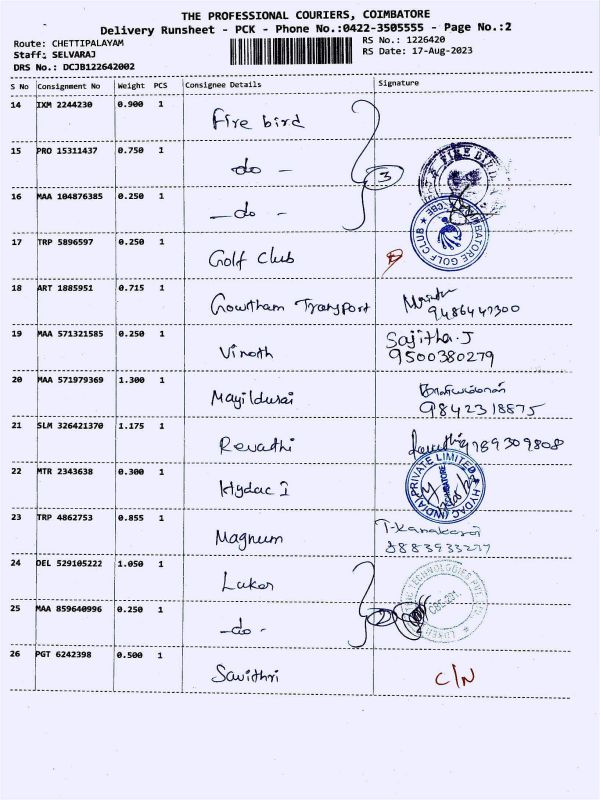 THE PROFESSIONAL COURIERS, COIMBATORE
Delivery Runsheet - PCK - Phone No.:0422-3505555 - Page No.:2
Route: CHETTIPALAYAM RS No.: 1226420
Staff: SELVARAJ RS Date: 17-Aug-2023
DRS No.: DCJB122642002
S No Consignment No Weight PCS Consignee Details Signature
14 IXM 2244230 0.900 1 Fire bird
15 PRO 15311437 0.750 1 -do- 3
FIRE BIRD
16 MAA 104876385 0.250 1 -do-
COIMBATORE GOLF CLUB ★ CBE ★
17 TRP 5896597 0.250 1 Golf Club
18 ART 1885951 0.715 1 Gowtham Transport
9486447300
19 MAA 571321585 0.250 1 Vinoth Sajitha.J
9500380279
20 MAA 571979369 1.300 1 Mayildurai
9842318875
21 SLM 326421370 1.175 1 Revathi Revathi 9789309808
22 MTR 2343638 0.300 1 Hydac I
HYDAC (INDIA) PRIVATE LIMITED
COIMBATORE
23 TRP 4862753 0.855 1 Magnum T-Kanakaraj
24 DEL 529105222 1.050 1 Luker
LUKER TECHNOLOGIES PVT
25 MAA 859640996 0.250 1 -do- 2
26 PGT 6242398 0.500 1 Savithri C/N